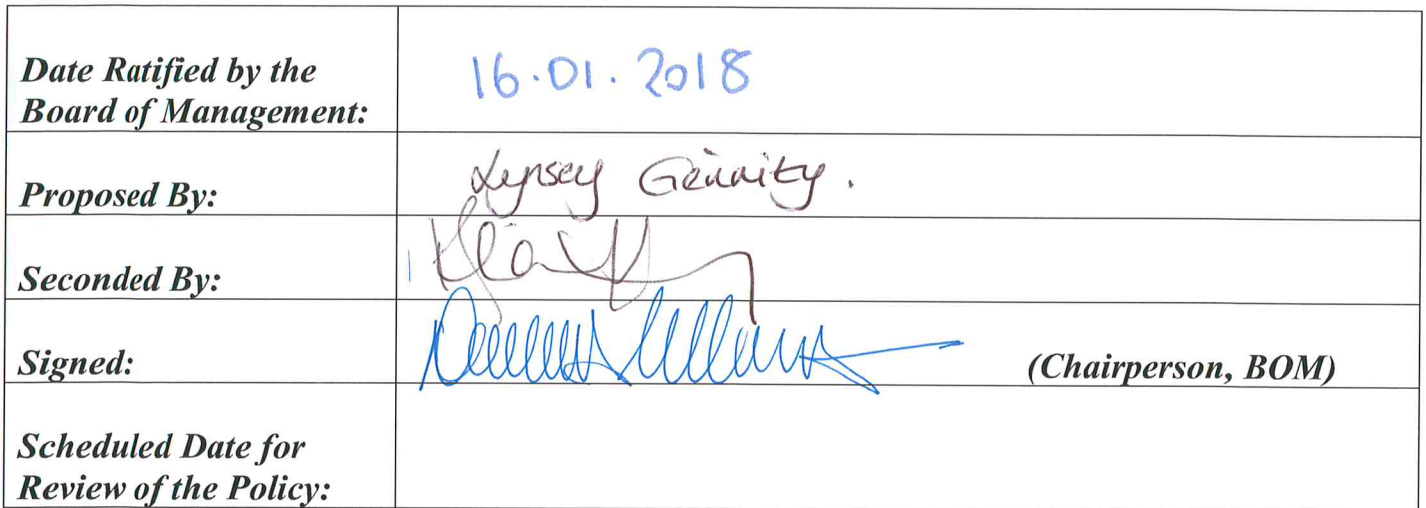 Date Ratified by the
Board of Management:
16.01.2018
Proposed By:
Lynsey Gennity.
Seconded By:
Signed:
(Chairperson, BOM)
Scheduled Date for
Review of the Policy: